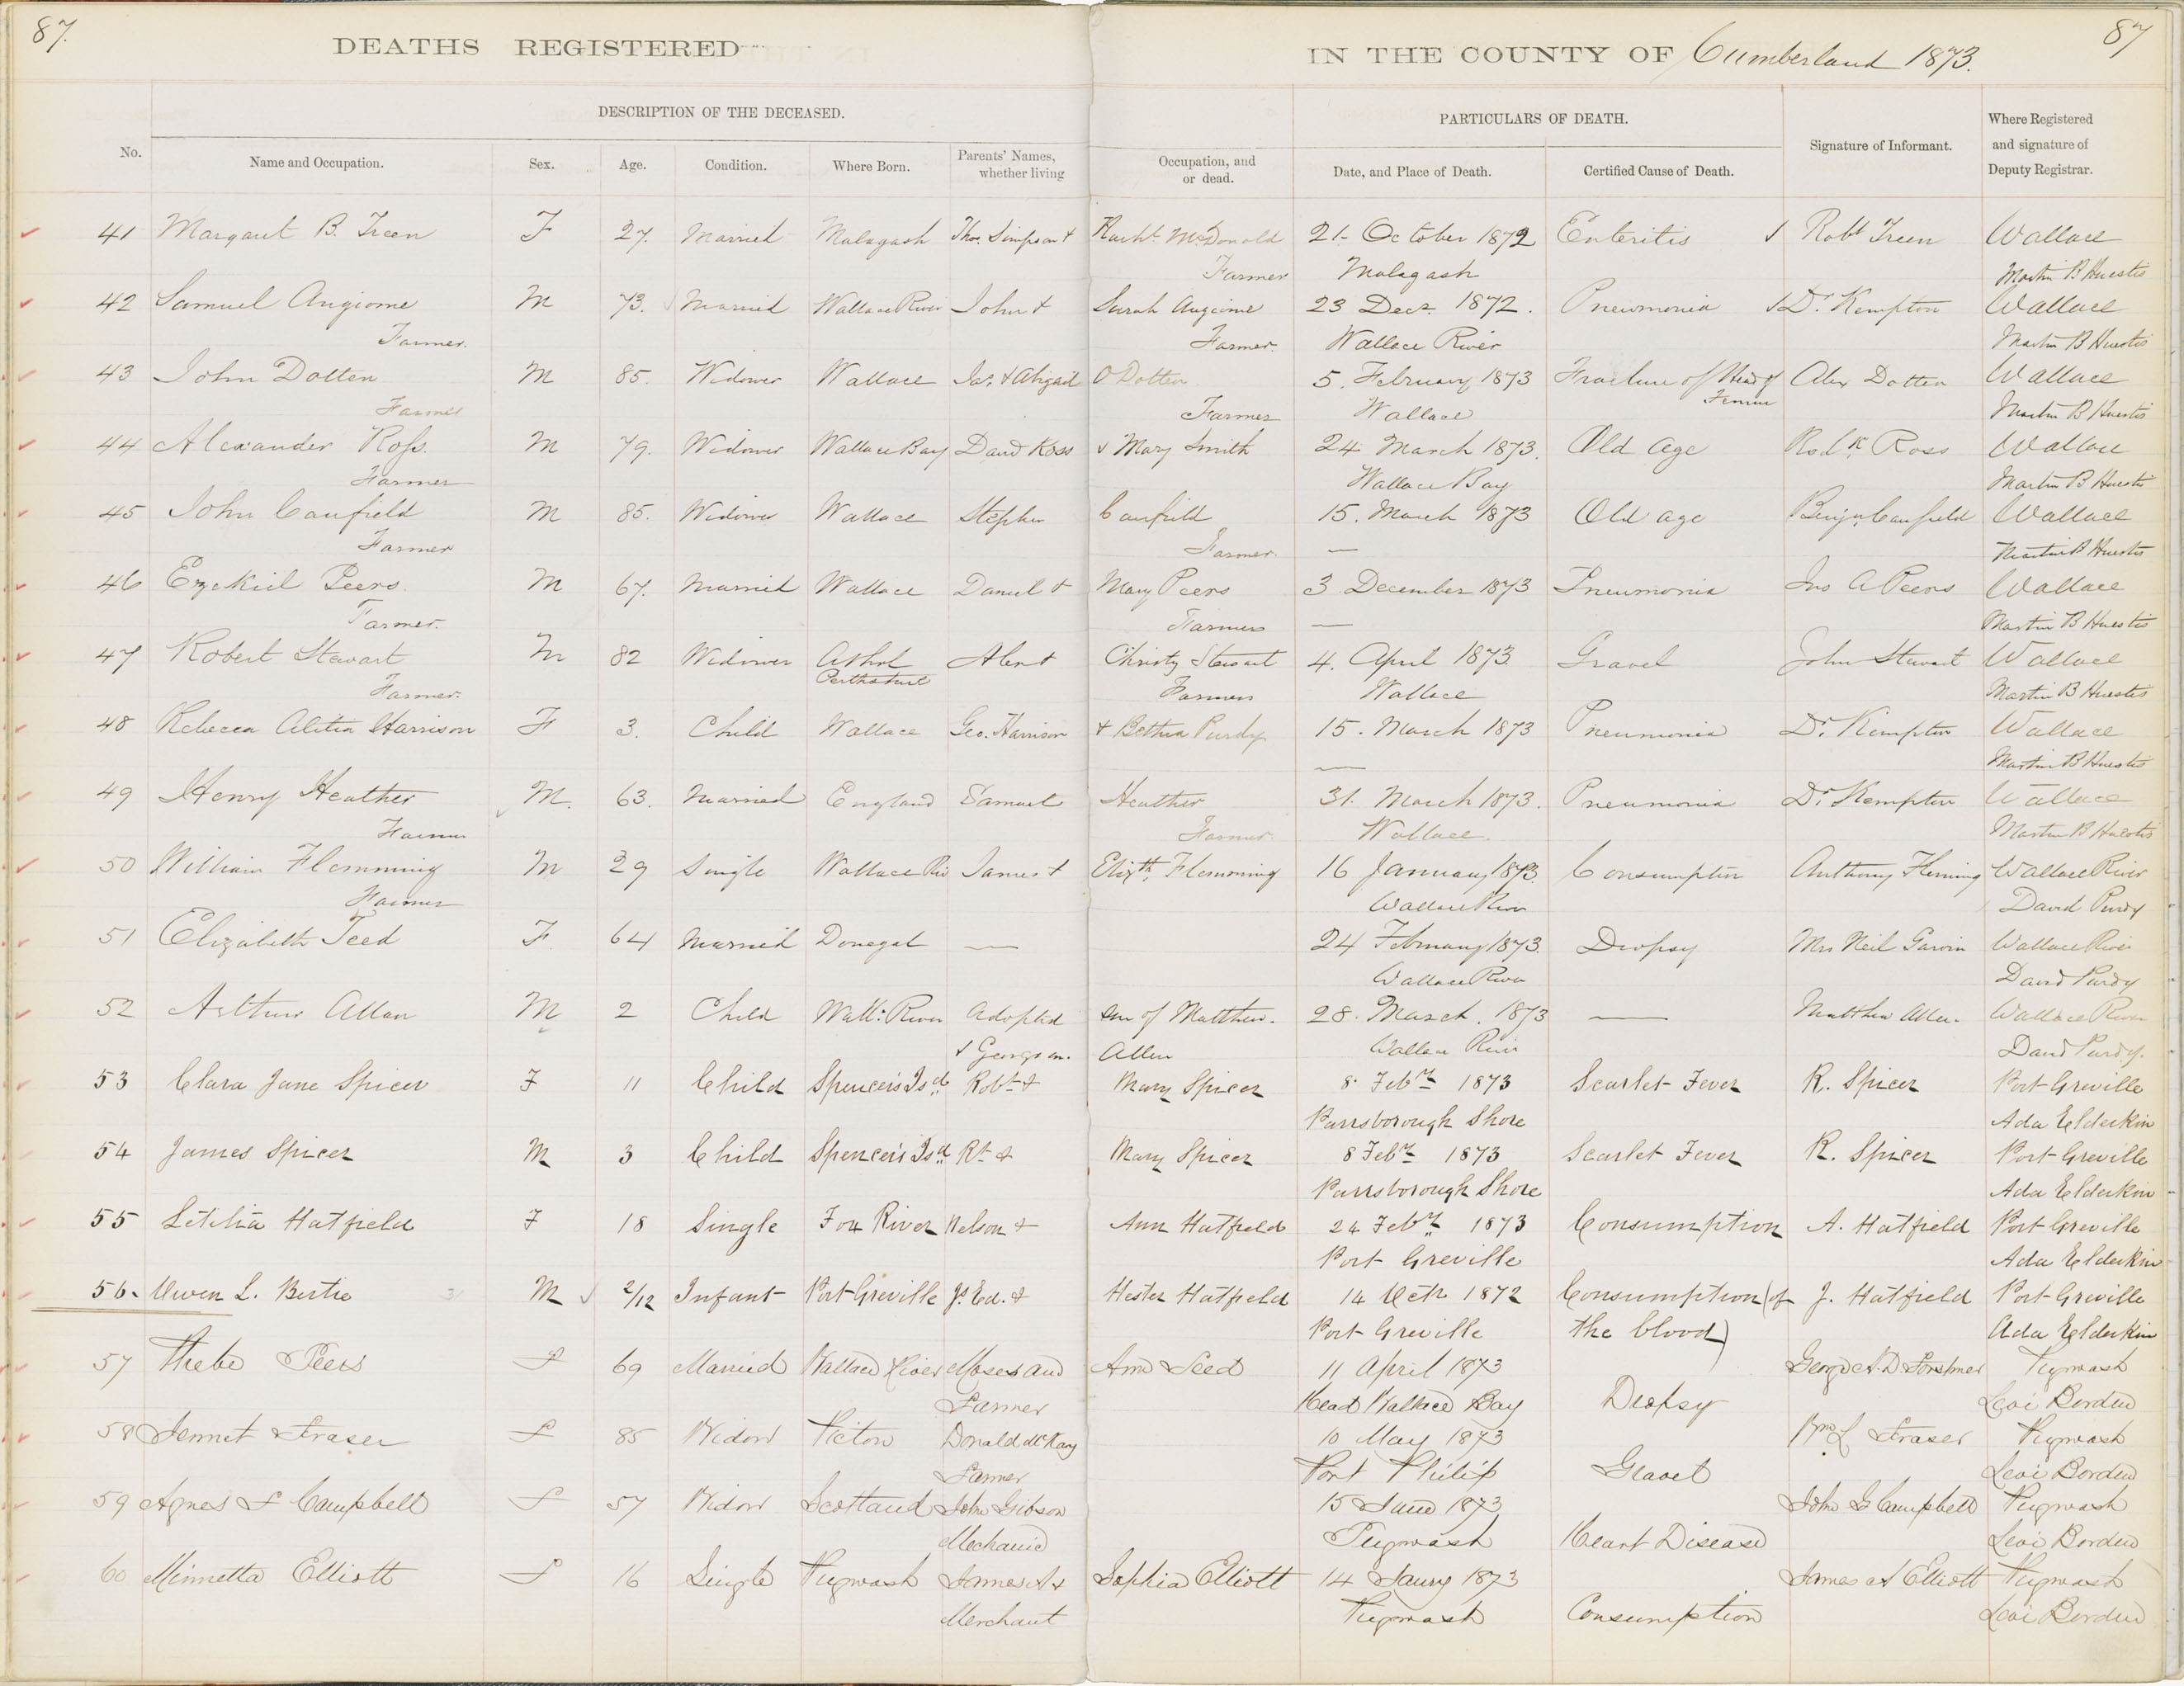 87.
87
DEATHS REGISTERED
IN THE COUNTY OF Cumberland 1873.
DESCRIPTION OF THE DECEASED.
PARTICULARS OF DEATH.
No. Name and Occupation. Sex. Age. Condition. Where Born. Parents' Names, whether living Occupation, and or dead. Date, and Place of Death. Certified Cause of Death. Signature of Informant. Where Registered and signature of Deputy Registrar.
41 Margaret B. Treen F 27. Married Malagash Thos. Simpson & Racht. McDonald 21. October 1872 Enteritis Robt Treen Wallace
Farmer Malagash Martin B Huestis
42 Samuel Angiome M 73. Married Wallace River John & Sarah Angiome 23 Decr. 1872. Pneumonia Dr. Kempton Wallace
Farmer. Farmer. Wallace River Martin B Huestis
43 John Dotten M 85. Widower Wallace Jas. & Abigail O Dotten 5. February 1873 Fracture of Head of Alex Dotten Wallace
Farmer Farmer Wallace Femur Martin B Huestis
44 Alexander Ross. M 79. Widower Wallace Bay David Ross & Mary Smith 24 March 1873. Old Age Rodk. Ross Wallace
Farmer Wallace Bay Martin B Huestis
45 John Canfield M 85. Widower Wallace Stephen Canfield 15. March 1873 Old age Benjn. Canfield Wallace
Farmer Farmer. — Martin B Huestis
46 Ezekiel Peers. M 67. Married Wallace Daniel & Mary Peers 3 December 1873 Pneumonia Jno A Peers Wallace
Farmer. Farmers — Martin B Huestis
47 Robert Stewart M 82 Widower Athol Alexr & Christy Stewart 4. April 1873. Gravel John Stewart Wallace
Farmer. Perthshire Farmers Wallace Martin B Huestis
48 Rebecca Alitia Harrison F 3. Child Wallace Geo. Harrison & Bethia Purdy 15. March 1873 Pneumonia Dr. Kempton Wallace
— Martin B Huestis
49 Henry Heather M. 63. Married England Samuel Heather 31. March 1873. Pneumonia Dr. Kempton Wallace
Farmer Farmer. Wallace. Martin B Huestis
50 William Flemming M 29 Single Wallace Riv James & Elizth. Flemming 16 January 1873. Consumption Anthony Fleming Wallace River
Farmer Wallace River David Purdy
51 Elizabeth Teed F 64 Married Donegal — 24 February 1873. Dropsy Mrs Neil Garvin Wallace River
Wallace River David Purdy
52 Arthur Allan M 2 Child Wall: River Adopted son of Matthew. 28. March. 1873 — Matthew Allen. Wallace River
& Georgean. Allen Wallace River David Purdy.
53 Clara Jane Spicer F 11 Child Spencer's Isd. Robt & Mary Spicer 8. Feby 1873 Scarlet Fever R. Spicer Port Greville
Parrsborough Shore Ada Elderkin
54 James Spicer M 3 Child Spencer's Isd. Rt & Mary Spicer 8 Feby 1873 Scarlet Fever R. Spicer Port Greville
Parrsborough Shore Ada Elderkin
55 Letitia Hatfield F 18 Single Fox River Nelson & Ann Hatfield 24 Feby 1873 Consumption A. Hatfield Port Greville
Port Greville Ada Elderkin
56. Owen L. Bertie M 2/12 Infant Port Greville Js. Ed. & Hester Hatfield 14 Octr 1872 Consumption (of J. Hatfield Port Greville
Port Greville the blood) Ada Elderkin
57 Phebe Peers F 69 Married Wallace River Moses and Ann Seed 11 April 1873 George A. D. Forshner Pugwash
Farmer Head Wallace Bay Dropsy Levi Borden
58 Jennet Fraser F 85 Widow Pictou Donald McKay 10 May 1873 Wm L Fraser Pugwash
Farmer Port Philip Gravel Levi Borden
59 Agnes F Campbell F 57 Widow Scotland John Gibson 15 June 1873 John G Campbell Pugwash
Mechanic Pugwash Heart Disease Levi Borden
60 Minnetta Elliott F 16 Single Pugwash James A & Sophia Elliott 14 Jany 1873 James A Elliott Pugwash
Merchant Pugwash Consumption Levi Borden